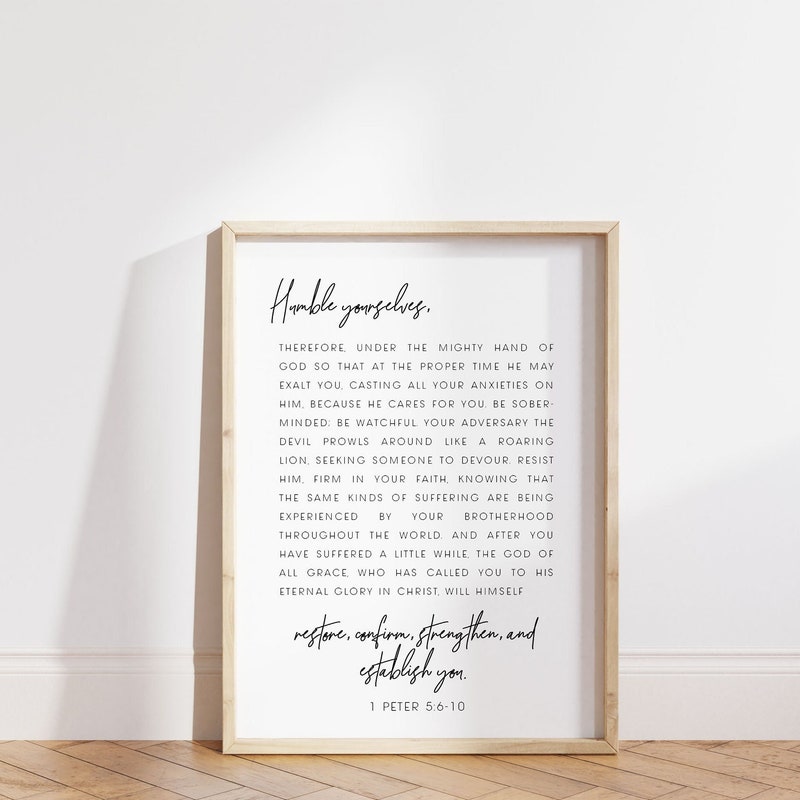 Humble yourselves,
THEREFORE, UNDER THE MIGHTY HAND OF
GOD SO THAT AT THE PROPER TIME HE MAY
EXALT YOU, CASTING ALL YOUR ANXIETIES ON
HIM, BECAUSE HE CARES FOR YOU. BE SOBER-
MINDED; BE WATCHFUL. YOUR ADVERSARY THE
DEVIL PROWLS AROUND LIKE A ROARING
LION, SEEKING SOMEONE TO DEVOUR. RESIST
HIM, FIRM IN YOUR FAITH, KNOWING THAT
THE SAME KINDS OF SUFFERING ARE BEING
EXPERIENCED BY YOUR BROTHERHOOD
THROUGHOUT THE WORLD. AND AFTER YOU
HAVE SUFFERED A LITTLE WHILE, THE GOD OF
ALL GRACE, WHO HAS CALLED YOU TO HIS
ETERNAL GLORY IN CHRIST, WILL HIMSELF
restore, confirm, strengthen, and
establish you.
1 PETER 5:6-10